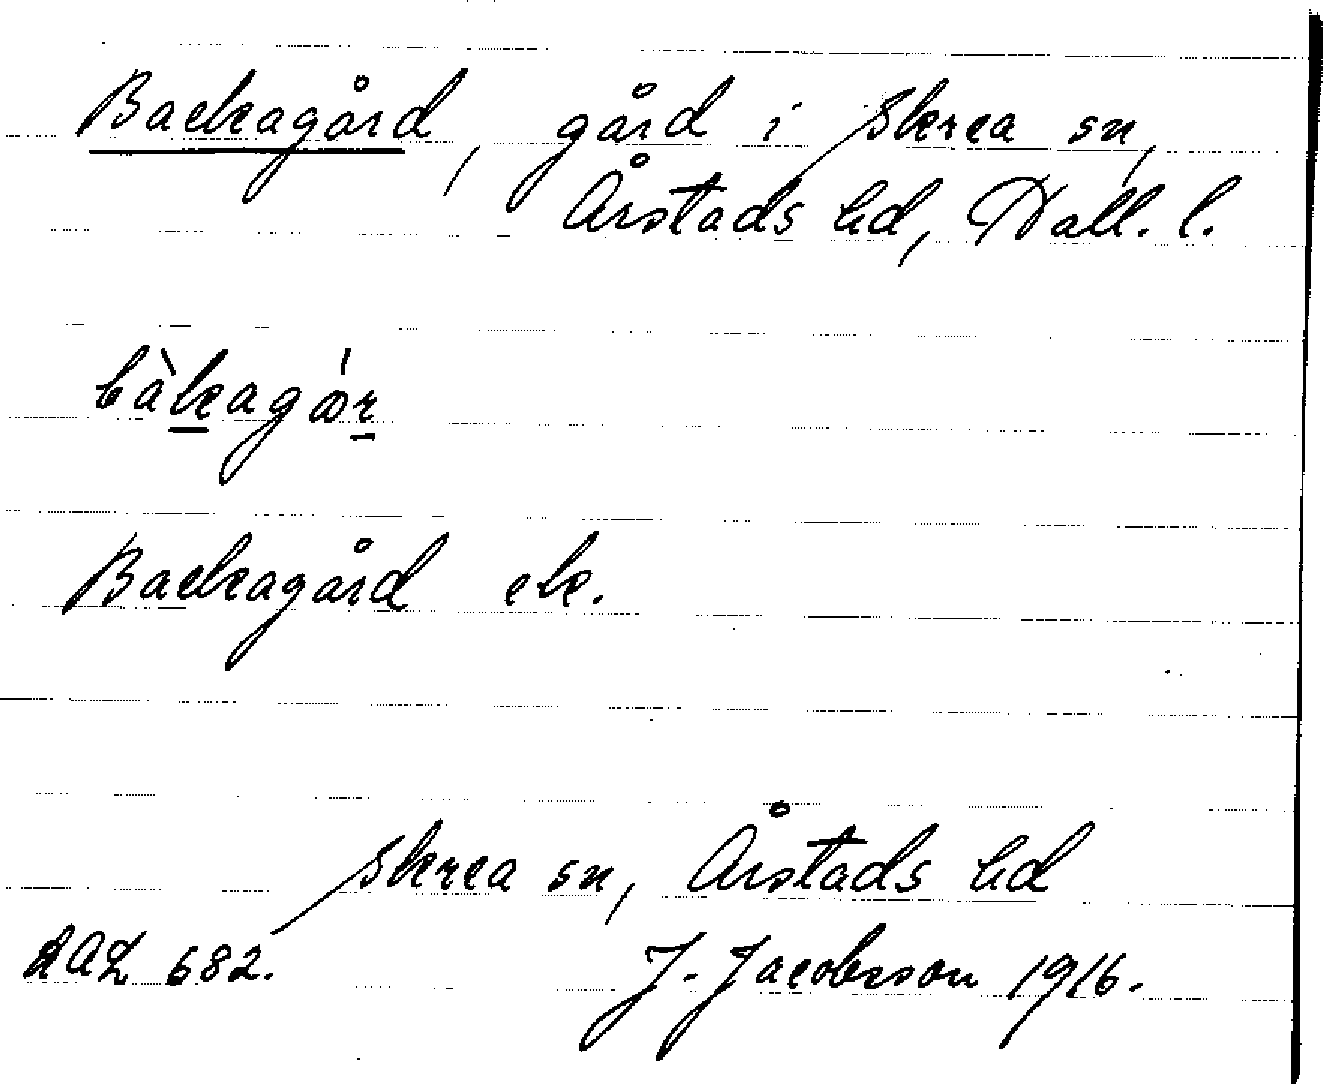 Backagård, gård i Skrea sn,
Årstads hd, Hall. l.
bàkagɷ́r
Backagård ek.
Skrea sn, Årstads hd
LAL 682. J. Jacobsson 1916.